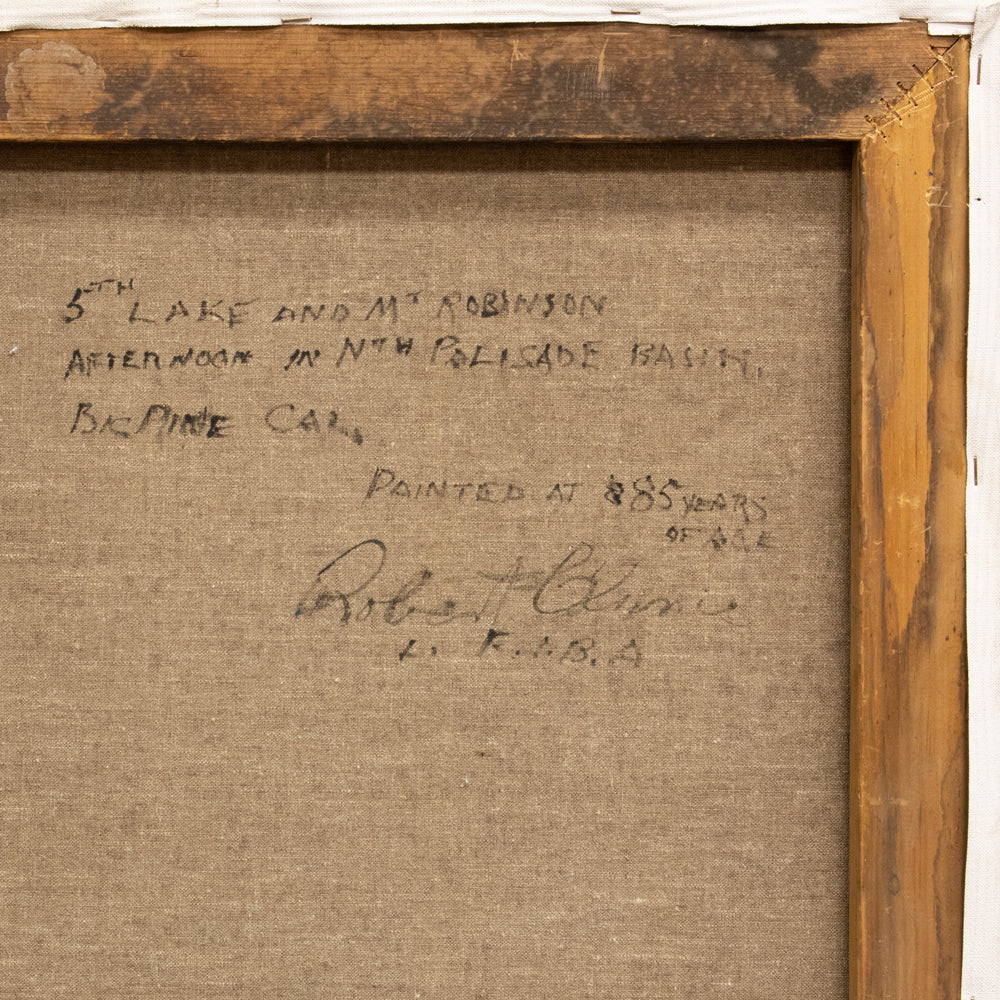 5TH LAKE AND MT ROBINSON
AFTERNOON IN NTH PALISADE BASIN,
BIG PINE CAL.
PAINTED AT 85 YEARS
OF AGE
Robert Clunie
L. F.I.B.A